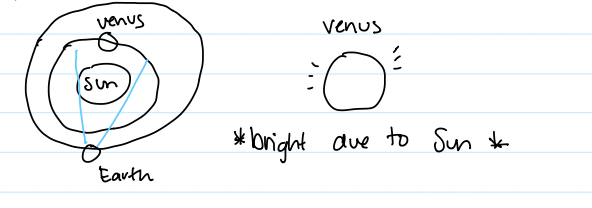 venus
Sun
Earth
venus
*bright due to Sun *